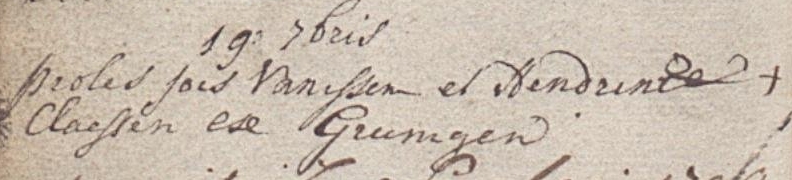 19: 7bris
proles jois Vanissen et Hendrin +
Claessen ex Grumgen